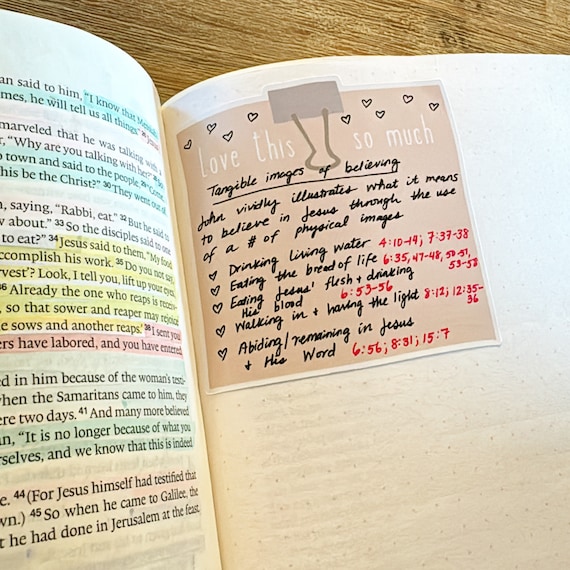 an said to him, "I know that Messiah
mes, he will tell us all things." Jesus
marveled that he was talking with a
r, "Why are you talking with her?"
o town and said to the people, "Come,
this be the Christ?" 30 They went out of
, saying, "Rabbi, eat." 32 But he said to
w about." 33 So the disciples said to one
to eat?" 34 Jesus said to them, "My food
accomplish his work. 35 Do you not say,
rvest'? Look, I tell you, lift up your eyes,
36 Already the one who reaps is receiv-
so that sower and reaper may rejoice
e sows and another reaps.' 38 I sent you
ers have labored, and you have entered
ed in him because of the woman's testi-
when the Samaritans came to him, they
ere two days. 41 And many more believed
an, "It is no longer because of what you
urselves, and we know that this is indeed
e. 44 (For Jesus himself had testified that
wn.) 45 So when he came to Galilee, the
t he had done in Jerusalem at the feast.
Love this so much
Tangible images of believing
John vividly illustrates what it means
to believe in Jesus through the use
of a # of physical images
Drinking living water 4:10-14; 7:37-38
Eating the bread of life 6:35, 47-48, 50-51,
53-58
Eating Jesus' flesh + drinking
His blood 6:53-56
Walking in + having the light 8:12; 12:35-
36
Abiding/remaining in Jesus
+ His Word 6:56; 8:31; 15:7